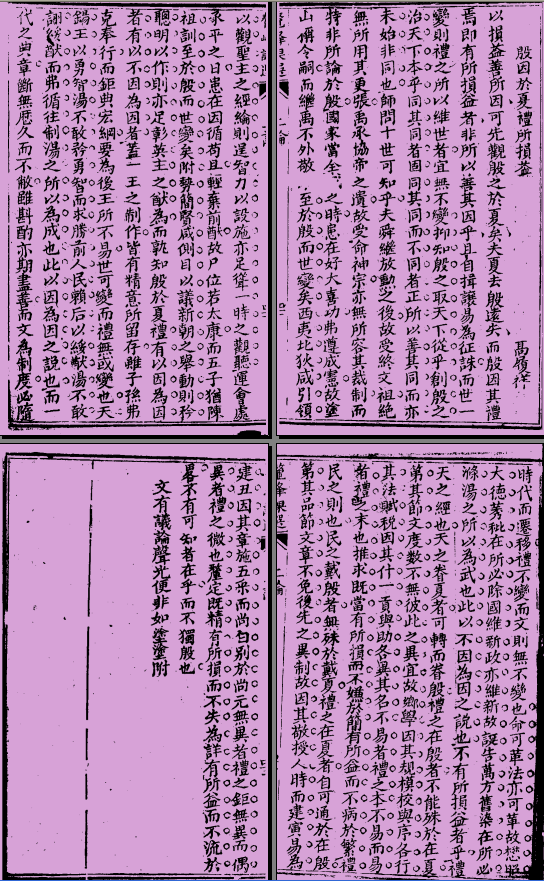 殷因於夏禮所損益
高履祥
以損益善所因可先觀殷之於夏矣夫夏去殷遠矣而殷因其禮
焉即有所損益者非所以善其因乎且自揖讓易為征誅而世一
變則禮之所以維世者宜無不變抑知殷之取天下從乎創殷之
治天下本乎同其同者固同其同而不同者正所以善其同而亦
未始非同也師問十世可知乎夫舜繼放勳之後故受終文祖絕
無所用其更張禹承協帝之遺故受命神宗亦無所容其裁制而
特非所論於殷國家當全 之時患在好大喜功弗遵成憲故塗
山 令嗣而繼禹不外敬 至於殷而世變矣西夷北狄咸引領
以觀聖主之經綸則逞智力以設施亦足聳一時之觀聽運會處
承平之日患在因循苟且輕棄前猷故尸位若太康而五子猶陳
祖訓至於殷而世變矣附勢簡賢咸側目以議新朝之舉動則矜
聰明以作則亦足彰英主之猷為而孰知殷於夏禮有以為因
者有以不因為因者蓋一王之制作皆有精意所留存雖子孫弗
克奉行而鉅典宏綱要為後王所不易世可變而禮無或變也天
錫王以勇智湯不敢矜勇智而求勝前人民賴后以綏猷湯不敢
詡綏猷而弗循往制湯之所以為成也此以因為因之說也而一
代之典章斷無歷久而不敝雖斟酌亦期盡善而文為制度必隨
時代而遷移禮不變而文則無不變也命可革法亦可革故懋昭
大德莠秕在所必除國維新政亦維新故誕告萬方舊染在所必
滌湯之所以為武也此以不因為因之說也不有所損益者乎禮
天之經也天之眷夏者可轉而眷殷禮之在殷者不能殊於在夏
第其節文度數不無彼此之異宜故鄉學因其規模校與序各行
其法賦稅因其什一貢與助各異其名不易者禮之本不易而易
者禮之末也推求既當有所損而不嫌於簡有所益而不病於繁禮
民之則也民之戴殷者無殊於戴夏禮之在夏者自可通於在殷
第其品節文章不免後先之異制故因其敬授人時而建寅易為
建丑因其章施五采而尚白別於尚元無異者禮之鉅無異而偶
異者禮之微也釐定既精有所損而不失為詳有所益而不流於
畧不有可知者在乎而不獨殷也
文有議論聲光便非如塗塗附